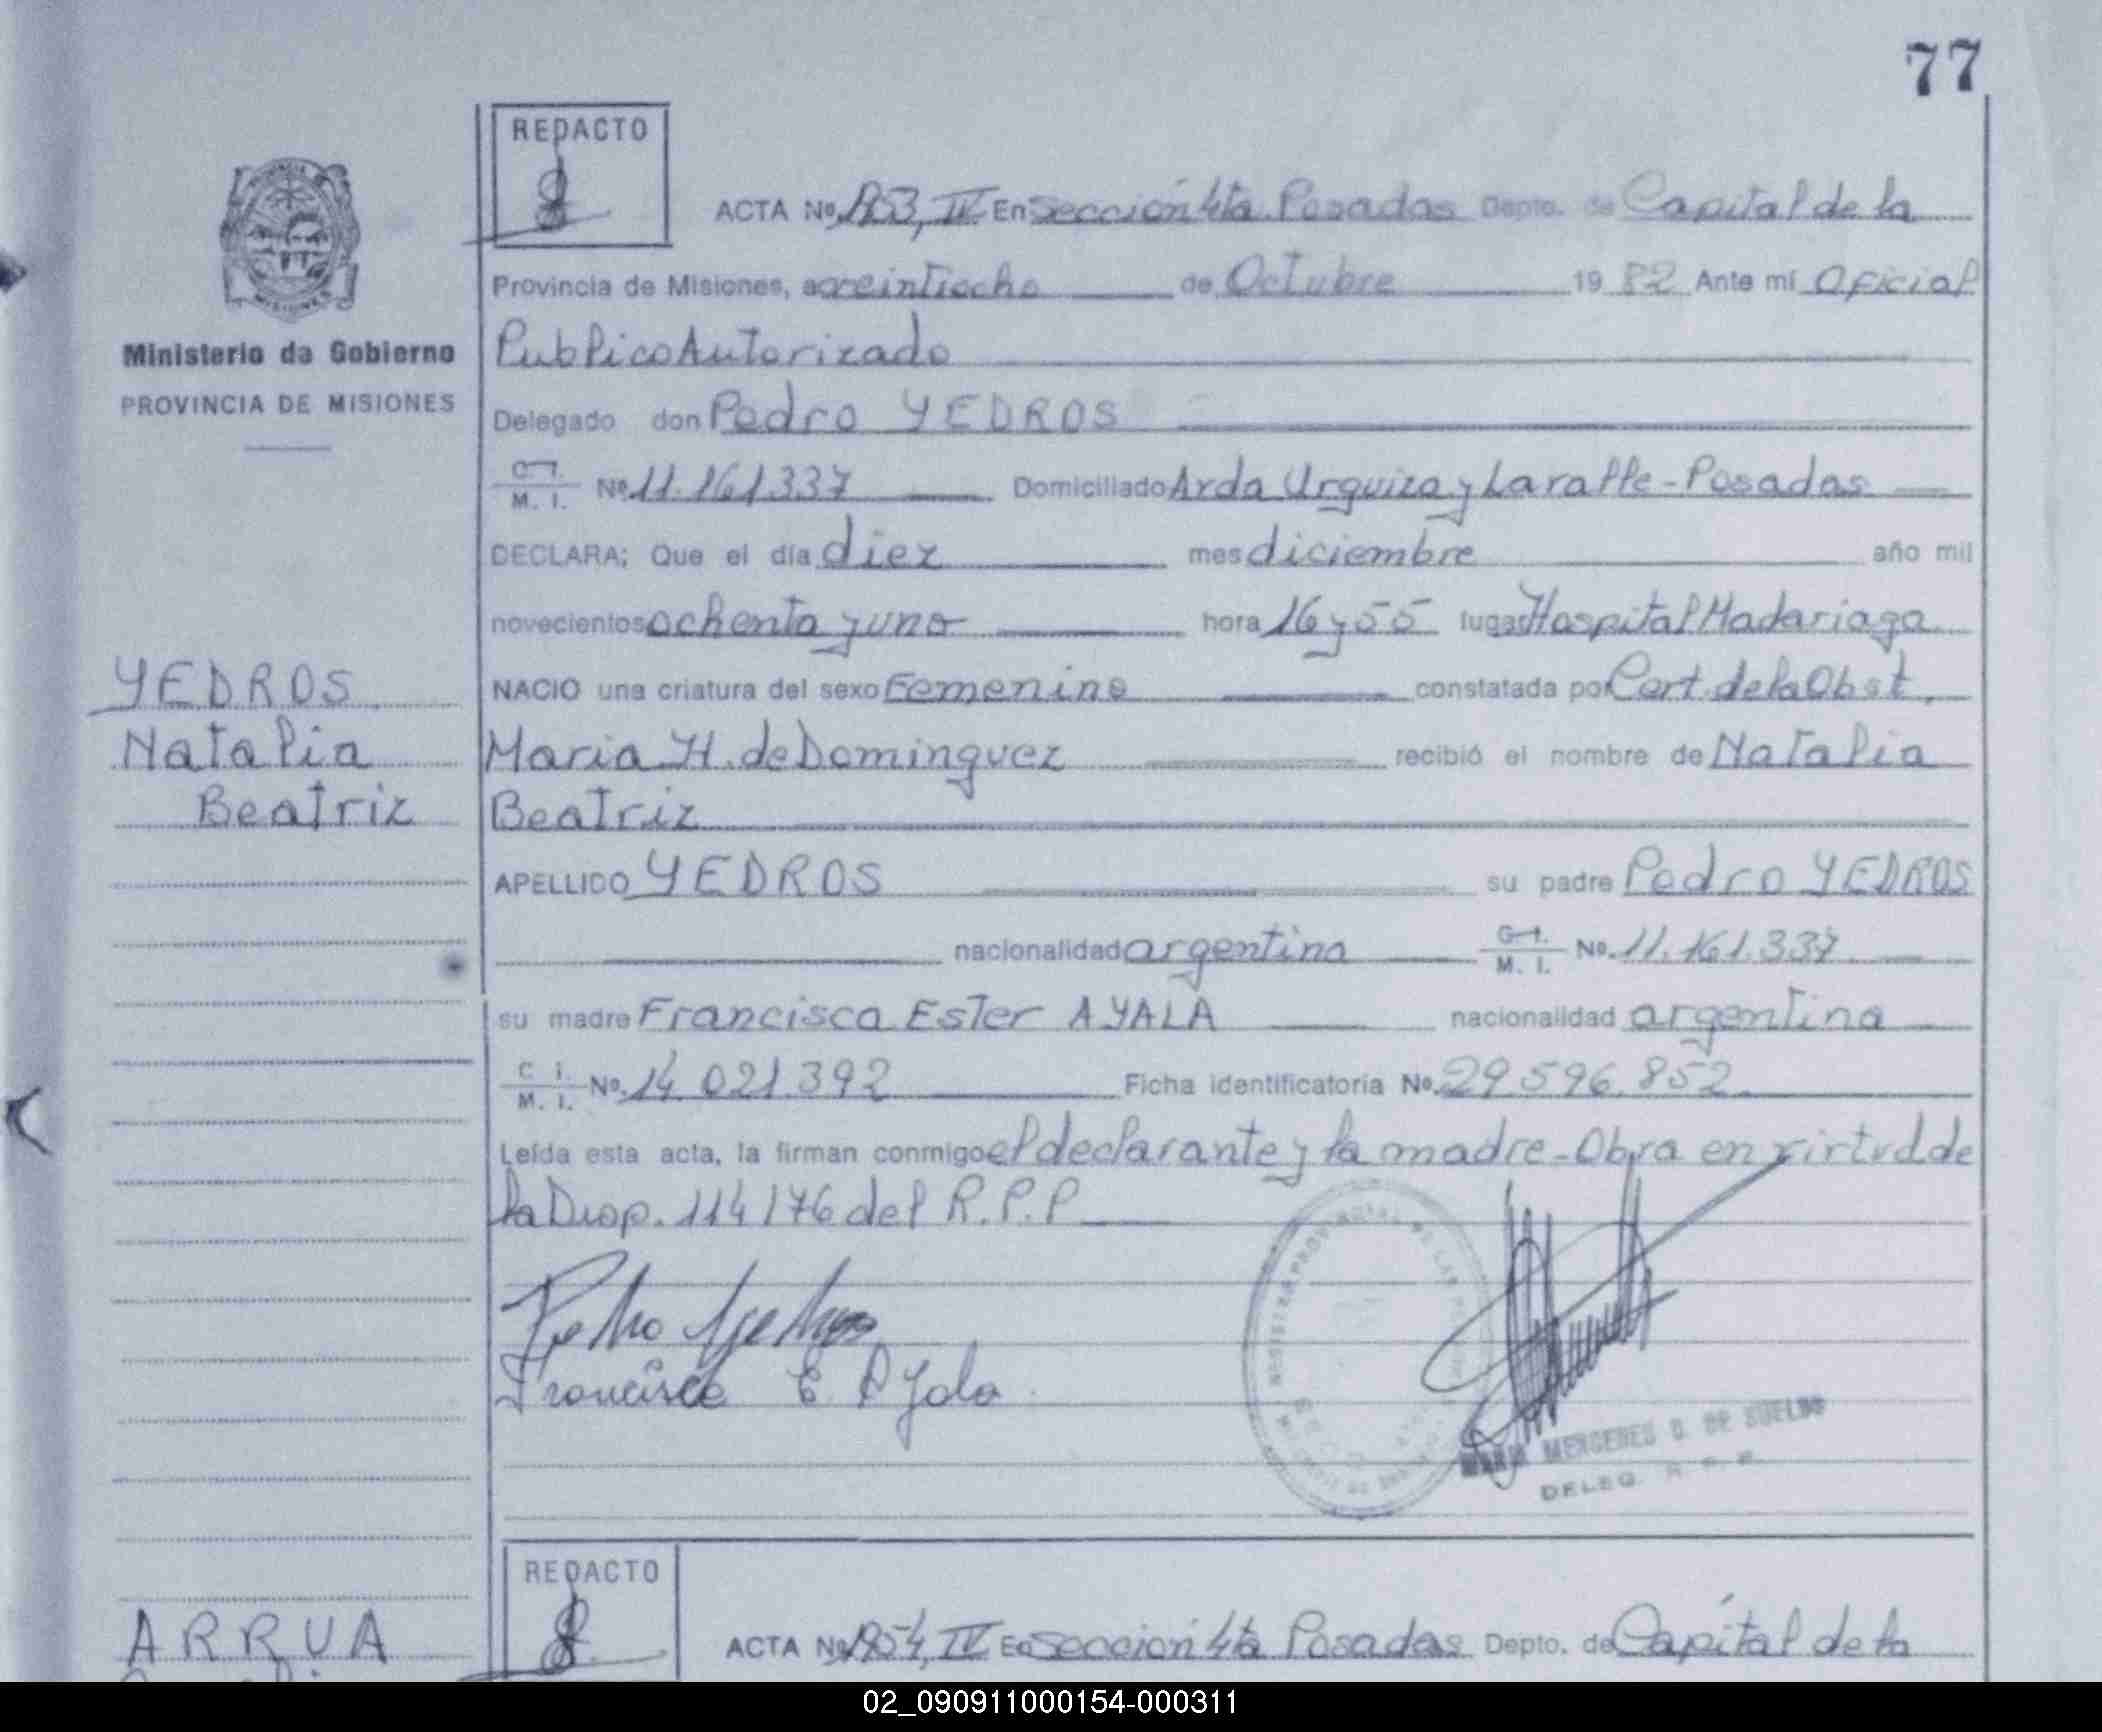 77
REDACTO
ACTA No. 153, IV En Sección 4ta. Posadas Depto. de Capital de la
Provincia de Misiones, a veintiocho de Octubre 19 82 Ante mí Oficial
Publico Autorizado
Ministerio de Gobierno
PROVINCIA DE MISIONES
Delegado don Pedro YEDROS
C. I.
M. I. No 11.161.337 Domiciliado Avda Urquiza y Laralle - Posadas
DECLARA; Que el día diez mes diciembre año mil
novecientos ochenta y uno hora 16 y 55 lugar Hospital Madariaga
YEDROS
Natalia
Beatriz
NACIO una criatura del sexo Femenino constatada por Cert. de la Obst.
Maria H. de Dominguez recibió el nombre de Natalia
Beatriz
APELLIDO YEDROS su padre Pedro YEDROS
nacionalidad argentina C. I. M. I. No. 11.161.337
su madre Francisca Ester AYALA nacionalidad argentina
C. I. M. I. No. 14.021.392 Ficha identificatoria No. 29.596.852
Leída esta acta, la firman conmigo el declarante y la madre - Obra en virtud de
la Disp. 114/76 del R.P.P.
Pedro Yedros
Francisca E. Ayala
MERCEDES D. DE SUELDO
DELEG. R. P. P.
REDACTO
ARRUA
ACTA No 154, IV En Sección 4ta Posadas Depto. de Capital de la
02_090911000154-000311